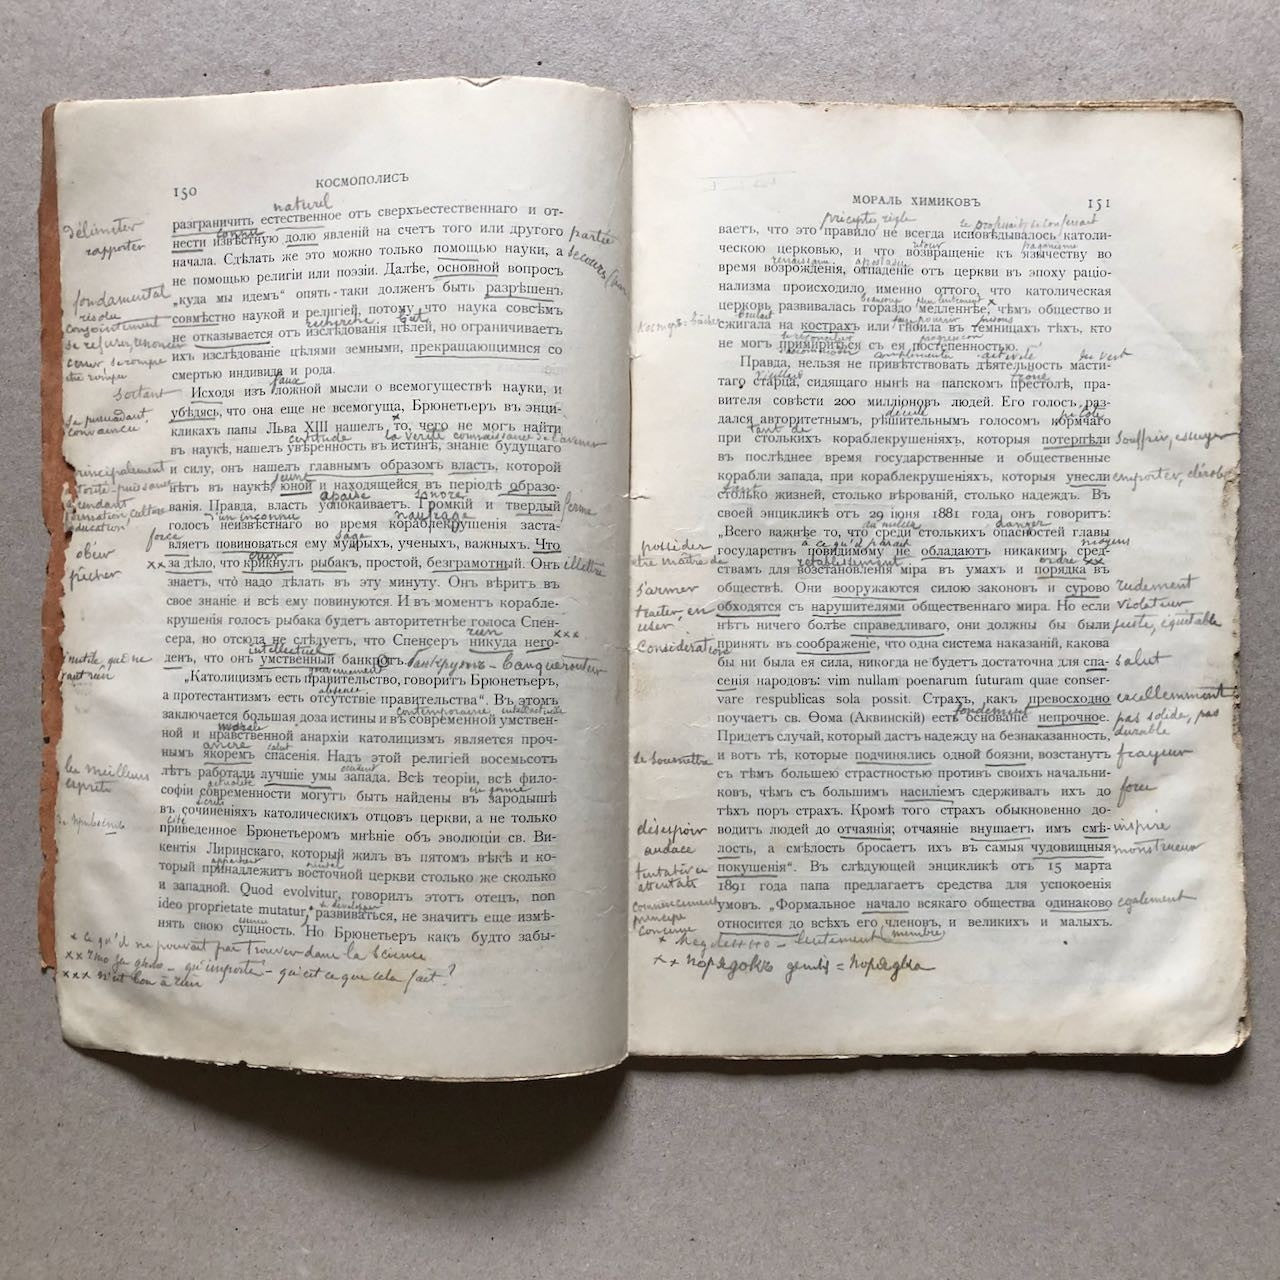 150
КОСМОПОЛИСЪ
naturel
разграничить естественное отъ сверхъестественнаго и от-
délimiter
rapporter
connu
нести извѣстную долю явленій на счетъ того или другого
partie
начала. Сдѣлать же это можно только помощью науки, а
secours
не помощью религіи или поэзіи. Далѣе, основной вопросъ
fondamental
„куда мы идемъ“ опять-таки долженъ быть разрѣшенъ
résolu
совмѣстно наукой и религіей, потому что наука совсѣмъ
conjointement
recherche but
не отказывается отъ изслѣдованія цѣлей, но ограничиваетъ
se refuser, renoncer
ихъ изслѣдованіе цѣлями земными, прекращающимися со
cesser, se rompre
être rompu
смертью индивида и рода.
faux
Исходя изъ ложной мысли о всемогуществѣ науки, и
sortant
убѣдясь, что она еще не всемогуща, Брюнетьеръ въ энци-
se persuadant,
convaincu
кликахъ папы Льва XIII нашелъ то, чего не могъ найти
certitude la vérité connaissance de l'avenir
въ наукѣ, нашелъ увѣренность въ истинѣ, знаніе будущаго
и силу, онъ нашелъ главнымъ образомъ власть, которой
principalement
jeune
нѣтъ въ наукѣ, юной и находящейся въ періодѣ образо-
apaise sonore
ванія. Правда, власть успокаиваетъ. Громкій и твердый
ferme
formation, culture
éducation
d'un inconnu naufrage
голосъ неизвѣстнаго во время кораблекрушенія заста-
force
sage
вляетъ повиноваться ему мудрыхъ, ученыхъ, важныхъ. Что
obéir
crier
×× за дѣло, что крикнулъ рыбакъ, простой, безграмотный. Онъ
illettré
pêcher
знаетъ, что̀ надо дѣлать въ эту минуту. Онъ вѣритъ въ
свое знаніе и всѣ ему повинуются. И въ моментъ корабле-
крушенія голосъ рыбака будетъ авторитетнѣе голоса Спен-
rien ×××
сера, но отсюда не слѣдуетъ, что Спенсеръ никуда него-
inutile, qui ne
vaut rien
intellectuel
денъ, что онъ умственный банкротъ.
банкрутъ - banqueroutier
gouvernement
„Католицизмъ есть правительство, говоритъ Брюнетьеръ,
absence
а протестантизмъ есть отсутствіе правительства“. Въ этомъ
contemporaine intellectuelle
заключается большая доза истины и въ современной умствен-
morale
ной и нравственной анархіи католицизмъ является проч-
ancre salut
нымъ якоремъ спасенія. Надъ этой религіей восемьсотъ
occident
лѣтъ работали лучшіе умы запада. Всѣ теоріи, всѣ фило-
les meilleurs
esprits
actualité en germe
софіи современности могутъ быть найдены въ зародышѣ
écrits
въ сочиненіяхъ католическихъ отцовъ церкви, а не только
cité
приведенное Брюнетьеромъ мнѣніе объ эволюціи св. Ви-
кентія Лиринскаго, который жилъ въ пятомъ вѣкѣ и ко-
appartient orientale
торый принадлежитъ восточной церкви столько же сколько
и западной. Quod evolvitur, говорилъ этотъ отецъ, non
se développer
ideo proprietate mutatur, развиваться, не значитъ еще измѣ-
essence
нять свою сущность. Но Брюнетьеръ какъ будто забы-
× ce qu'il ne pouvait pas trouver dans la science
×× что за дѣло - qu'importe - qu'est ce que cela fait?
××× n'est bon à rien
МОРАЛЬ ХИМИКОВЪ
151
précepte règle
ваетъ, что это правило не всегда исповѣдывалось католи-
retour paganisme
ческою церковью, и что возвращеніе къ язычеству во
renaissance apostasie
время возрожденія, отпаденіе отъ церкви въ эпоху раціо-
нализма происходило именно оттого, что католическая
beaucoup plus lentement ×
церковь развивалась гораздо медленнѣе, чѣмъ общество и
brûlait prisons
сжигала на кострахъ или гноила въ темницахъ тѣхъ, кто
se réconcilier progression
не могъ примириться съ ея постепенностью.
s'accommoder complimenter activité
Правда, нельзя не привѣтствовать дѣятельность масти-
vieillard trône
таго старца, сидящаго нынѣ на папскомъ престолѣ, пра-
вителя совѣсти 200 милліоновъ людей. Его голосъ раз-
décidé pilote
дался авторитетнымъ, рѣшительнымъ голосомъ кормчаго
tant de
при столькихъ кораблекрушеніяхъ, которыя потерпѣли
souffrir, essuyer
въ послѣднее время государственные и общественные
корабли запада, при кораблекрушеніяхъ, которыя унесли
emporter, dérober
столько жизней, столько вѣрованій, столько надеждъ. Въ
своей энцикликѣ отъ 29 іюня 1881 года, онъ говоритъ:
au milieu danger
„Всего важнѣе то, что среди столькихъ опасностей главы
posséder
être maître de
à ce qu'il paraît moyens
государствъ повидимому не обладаютъ никакимъ сред-
rétablissement ordre ××
ствамъ для возстановленія міра въ умахъ и порядка въ
s'armer
обществѣ. Они вооружаются силою законовъ и сурово
rudement
traiter, en
user
обходятся съ нарушителями общественнаго мира. Но если
violateur
нѣтъ ничего болѣе справедливаго, они должны бы были
juste, équitable
considération
принять въ соображеніе, что одна система наказаній, какова
бы ни была ея сила, никогда не будетъ достаточна для спа-
salut
сенія народовъ: vim nullam poenarum futuram quae conser-
vare respublicas sola possit. Страхъ, какъ превосходно
excellemment
fondement
поучаетъ св. Ѳома (Аквинскій) есть основаніе непрочное.
pas solide, pas
durable
Придетъ случай, который дастъ надежду на безнаказанность,
se soumettre
и вотъ тѣ, которые подчинялись одной боязни, возстанутъ
frayeur
съ тѣмъ большею страстностью противъ своихъ начальни-
ковъ, чѣмъ съ большимъ насиліемъ сдерживалъ ихъ до
force
тѣхъ поръ страхъ. Кромѣ того страхъ обыкновенно до-
désespoir
водитъ людей до отчаянія; отчаяніе внушаетъ имъ смѣ-
inspire
audace
лость, а смѣлость бросаетъ ихъ въ самыя чудовищныя
monstrueux
tentative
attentat
покушенія“. Въ слѣдующей энцикликѣ отъ 15 марта
1891 года папа предлагаетъ средства для успокоенія
commencement
principe
умовъ. „Формальное начало всякаго общества одинаково
également
concerne
относится до всѣхъ его членовъ, и великихъ и малыхъ.
membre
× медленно - lentement
×× порядокъ génitif = порядка